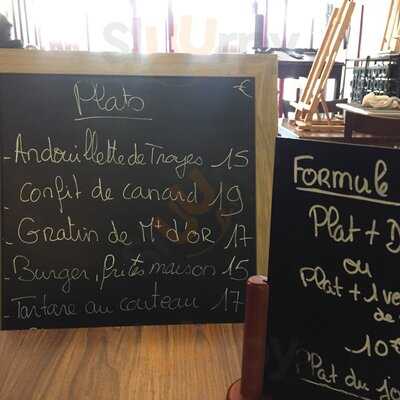 Plats €
- Andouillette de Troyes 15
- confit de canard 19
- Gratin de Mt d'OR 17
- Burger, frites maison 15
- Tartare au couteau 17
Formule
Plat + D
ou
Plat + 1 ve
de
10€
Plat du jo